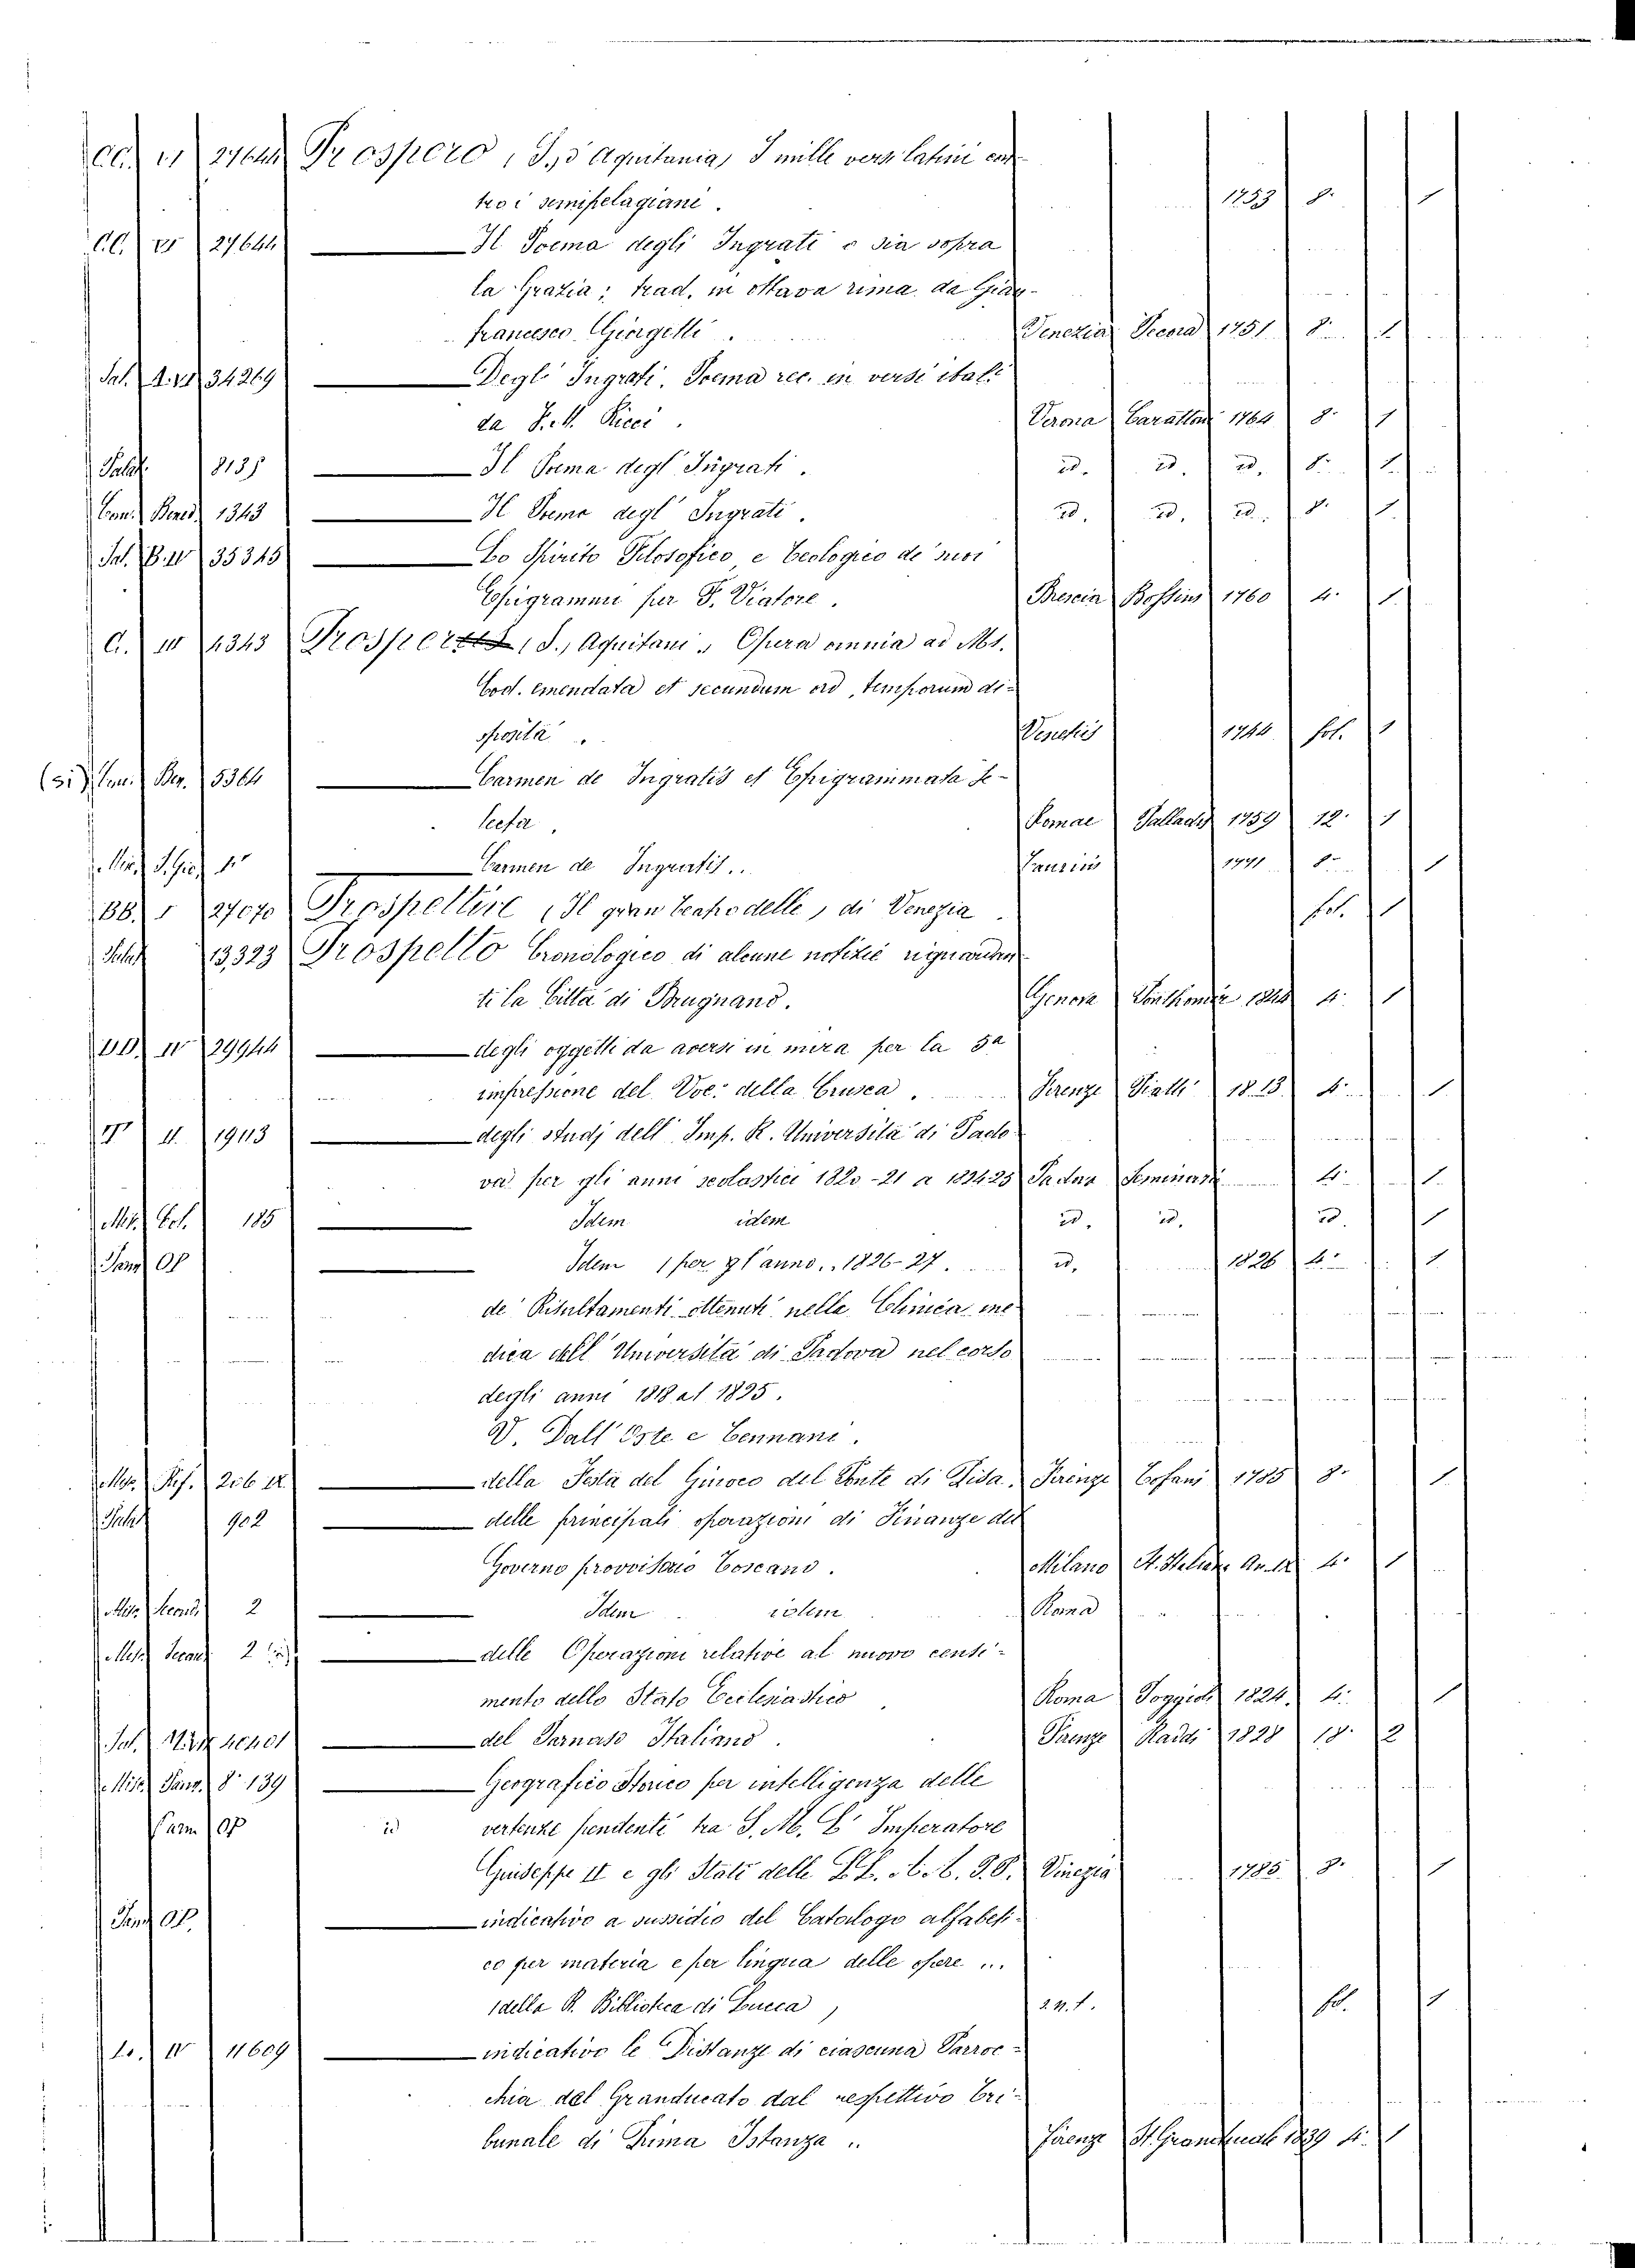 CC. VI 27644 Prospero, S., d'Aquitania, I mille versi latini con
tro i semipelagiani. 1753 8. 1
CC. VI 27644 Il Poema degli Ingrati o sia sopra
la Grazia; trad. in ottava rima da Gian-
francesco Giorgetti. Venezia 1751 8. 1
Sal. 34269 Degl' Ingrati. Poema rec. in versi itali
da F. M. Ricci. Verona Carattoni 1764 8. 1
Palat. 8135 Il Poema degl' Ingrati. id. id. id. 8. 1
Com. Bened. 1343 Il Poema degl' Ingrati. id. id. id. 8. 1
Sal. B. IV 35345 Lo Spirito Filosofico, e Teologico de' suoi
Epigrammi per F. Viatore. Brescia Bossini 1760 4. 1
C. IV 4343 Prosperi, S., Aquitani, Opera omnia ad Mss.
Cod. emendata et secundum ord. temporum di-
sposita. Venetiis 1744 fol. 1
(si) Com. Ben. 5364 Carmen de Ingratis et Epigrammata se-
lecta. Romae Palladis 1759 12. 1
Carmen de Ingratis.. 8. 1
BB. 1 27070 Prospettive, Il gran Teatro delle, di Venezia. fol. 1
Palat 13,323 Prospetto Cronologico di alcune notizie riguardan
ti la Città di Brugnano. Genova Ponthenier 4. 1
DD. IV 29944 degli oggetti da aversi in mira per la 5a
impressione del Voc. della Crusca. Firenze Piatti 1813 4. 1
T II. 19113 degli studj dell' Imp. R. Università di Pado
va per gli anni scolastici 1820-21 a 1824-25 Padova Seminario 4. 1
Misc. Col. 185 Idem idem id. id. id. 1
Pamf OP Idem per gl'anno.. 1826-27. id. 1826 4. 1
de' Risultamenti ottenuti nelle Clinica me
dica dell' Università di Padova nel corso
degli anni 1818 al 1825.
V. Dall' Oste e Cennani.
Misc. Rif. 206 12. della Festa del Giuoco del Ponte di Pisa. Firenze Tofani 1785 8. 1
Palat 902 delle principali operazioni di Finanze del
Governo provvisorio Toscano. Milano St. Italiana An. 4. 1
Misc. 2 Idem idem Roma
Misc. 2 delle Operazioni relative al nuovo censi-
mento dello Stato Ecclesiastico Roma Poggioli 1824. 4. 1
Sal. del Parnaso Italiano. Firenze Raddi 1828 18. 2
Misc. Pamf. 8. 139 Geografico Storico per intelligenza delle
Pam OP id vertenze pendenti tra S. M. L' Imperatore
Giuseppe II e gli Stati delle P. P. U. U. Vinezia 1785. 8. 1
Pamf OP. indicativo a sussidio del Catalogo alfabeti-
co per materia e per lingua delle opere ...
della R. Biblioteca di Lucca, fol. 1
IV 11609 indicativo le Distanze di ciascuna Parroc-
chia del Granducato dal respettivo Tri-
bunale di Prima Istanza.. Firenze St. Granducale 1839 4. 1